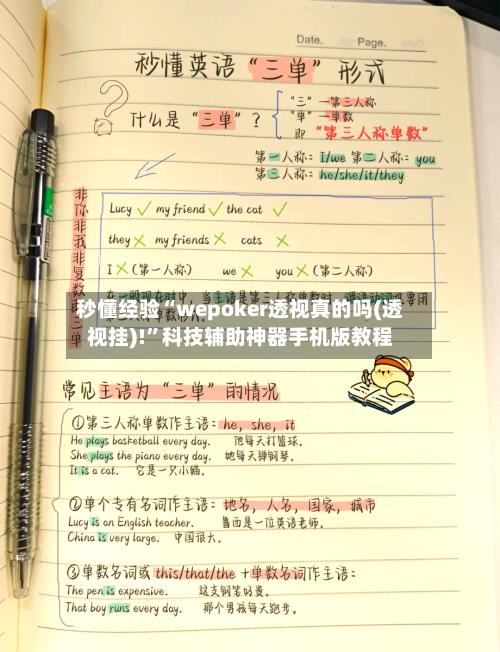 Date. Page.
秒懂英语“三单”形式
什么是“三单”?
"三"—第三人称
"单"—单数
即 "第三人称单数"
第一人称: I/we 第二人称: you
第三人称: he/she/it/they
非你非我非复数即三单
Lucy ✓ my friend ✓ the cat ✓
they × my friends × cats ×
I × (第一人称) we × you × (第二人称)
秒懂经验“wepoker透视真的吗(透
视挂)!”科技辅助神器手机版教程
常见主语为“三单”的情况
①第三人称单数作主语: he, she, it
He plays basketball every day. 他每天打篮球。
She plays the piano every day. 她每天弹钢琴。
It is a cat. 它是一只小猫。
②单个专有名词作主语: 地名, 人名, 国家, 城市
Lucy is an English teacher. 鲁西是一位英语老师。
China is very large. 中国很大。
③单数名词或 this/that/the +单数名词作主语:
The pen is expensive. 这支钢笔好贵。
That boy runs every day. 那个男孩每天跑步。